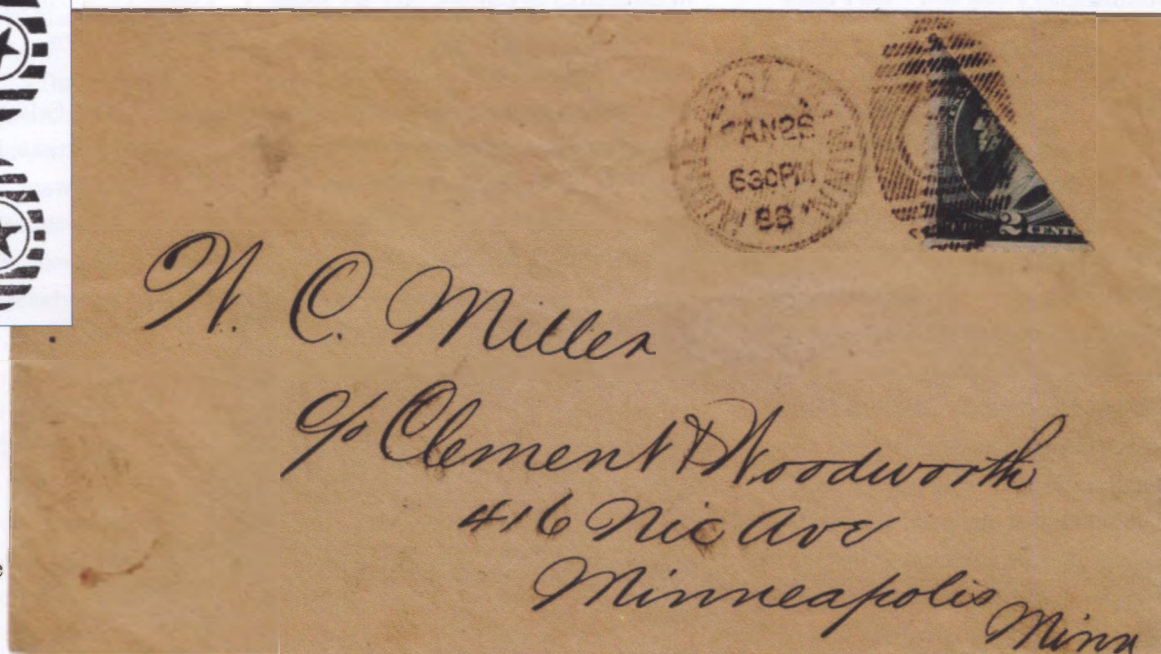 MINNEAPOLIS MINN.
JAN 26
630 PM
88
2 CENTS
W. C. Miller
c/o Clement & Woodworth
416 Nic Ave
Minneapolis
Minn